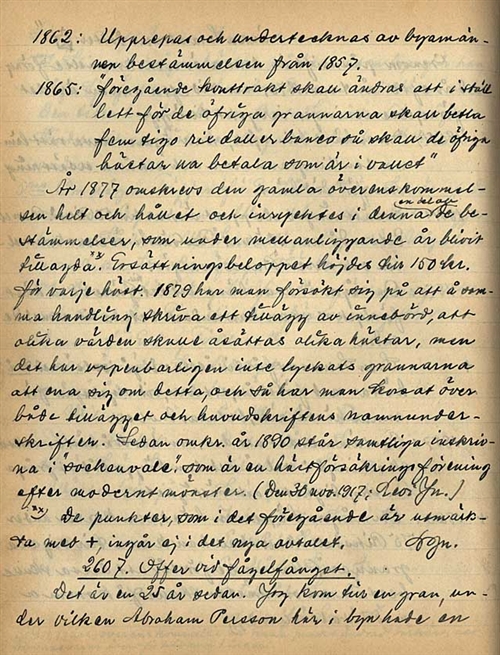 1862: Upprepas och undertecknas av byamän-
nen bestämmelsen från 1857.
1865: "föregående kontrakt skall ändras att i ställ
lett för de öfriga grannarna skall betla
fem tigo rix daller banco så skall de öfriga
hästar na betala som är i vallet"
År 1877 omskrevs den gamla överenskommel-
sen helt och hållet och inrycktes i denna en del av de be-
stämmelser, som under mellanliggande år blivit
tillagda x). Ersättningsbeloppet höjdes till 150 kr.
för varje häst. 1879 har man försökt sig på att å sam-
ma handling skriva ett tillägg av innebörd, att
olika värden skulle åsättas olika hästar, men
det har uppenbarligen inte lyckats grannarna
att ena sig om detta, och så har man korsat över
både tillägget och huvudskriftens namnunder-
skrifter. Sedan omkr. år 1890 står samtliga inskriv-
na i "sockenvale", som är en hästförsäkringsförening
efter modernt mönster. (Den 30 nov. 1917; Leos Jn.)
x) De punkter, som i det föregående är utmärk-
ta med +, ingår ej i det nya avtalet. Dgn.
2607. Offer vid fågelfånget.
Det är en 25 år sedan. Jag kom till en gran, un-
der vilken Abraham Persson här i byn hade en